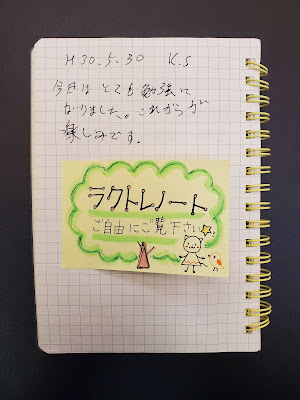 H30.5.30 K.S
今日はとても勉強に
なりました。これからが
楽しみです。
ラクトレノート
ご自由にご覧下さい